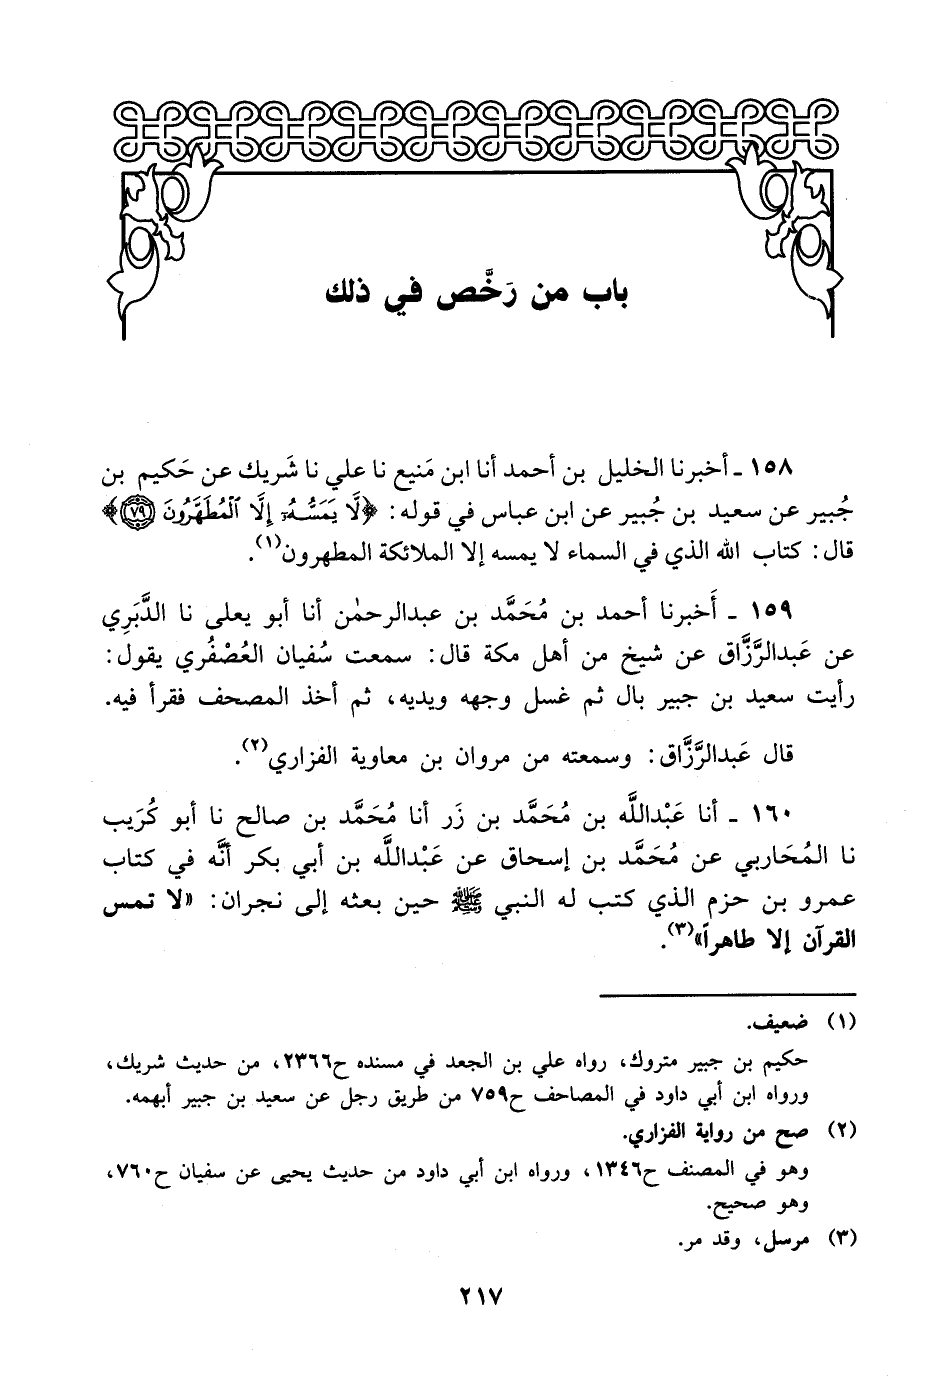 باب من رَخَّص في ذلك
١٥٨ ـ أخبرنا الخليل بن أحمد أنا ابن مَنيع نا علي نا شَريك عن حَكيم بن
جُبير عن سعيد بن جُبير عن ابن عباس في قوله: ﴿لَّا يَمَسُّهُۥٓ إِلَّا ٱلْمُطَهَّرُونَ ٧٩﴾
قال: كتاب الله الذي في السماء لا يمسه إلا الملائكة المطهرون(١).
١٥٩ ـ أَخبرنا أحمد بن مُحَمَّد بن عبدالرحمٰن أنا أبو يعلى نا الدَّبَرِي
عن عَبدالرَّزَّاق عن شيخ من أهل مكة قال: سمعت سُفيان العُصْفُري يقول:
رأيت سعيد بن جبير بال ثم غسل وجهه ويديه، ثم أخذ المصحف فقرأ فيه.
قال عَبدالرَّزَّاق: وسمعته من مروان بن معاوية الفزاري(٢).
١٦٠ ـ أنا عَبْداللَّه بن مُحَمَّد بن زَر أنا مُحَمَّد بن صالح نا أبو كُرَيب
نا المُحَاربي عن مُحَمَّد بن إسحاق عن عَبْداللَّه بن أبي بكر أنَّه في كتاب
عمرو بن حزم الذي كتب له النبي ﷺ حين بعثه إلى نجران: «لا تمس
القرآن إلا طاهراً»(٣).
(١) ضعيف.
حكيم بن جبير متروك، رواه علي بن الجعد في مسنده ح٢٣٦٦، من حديث شريك،
ورواه ابن أبي داود في المصاحف ح٧٥٩ من طريق رجل عن سعيد بن جبير أبهمه.
(٢) صح من رواية الفزاري.
وهو في المصنف ح١٣٤٦، ورواه ابن أبي داود من حديث يحيى عن سفيان ح٧٦٠،
وهو صحيح.
(٣) مرسل، وقد مر.
٢١٧